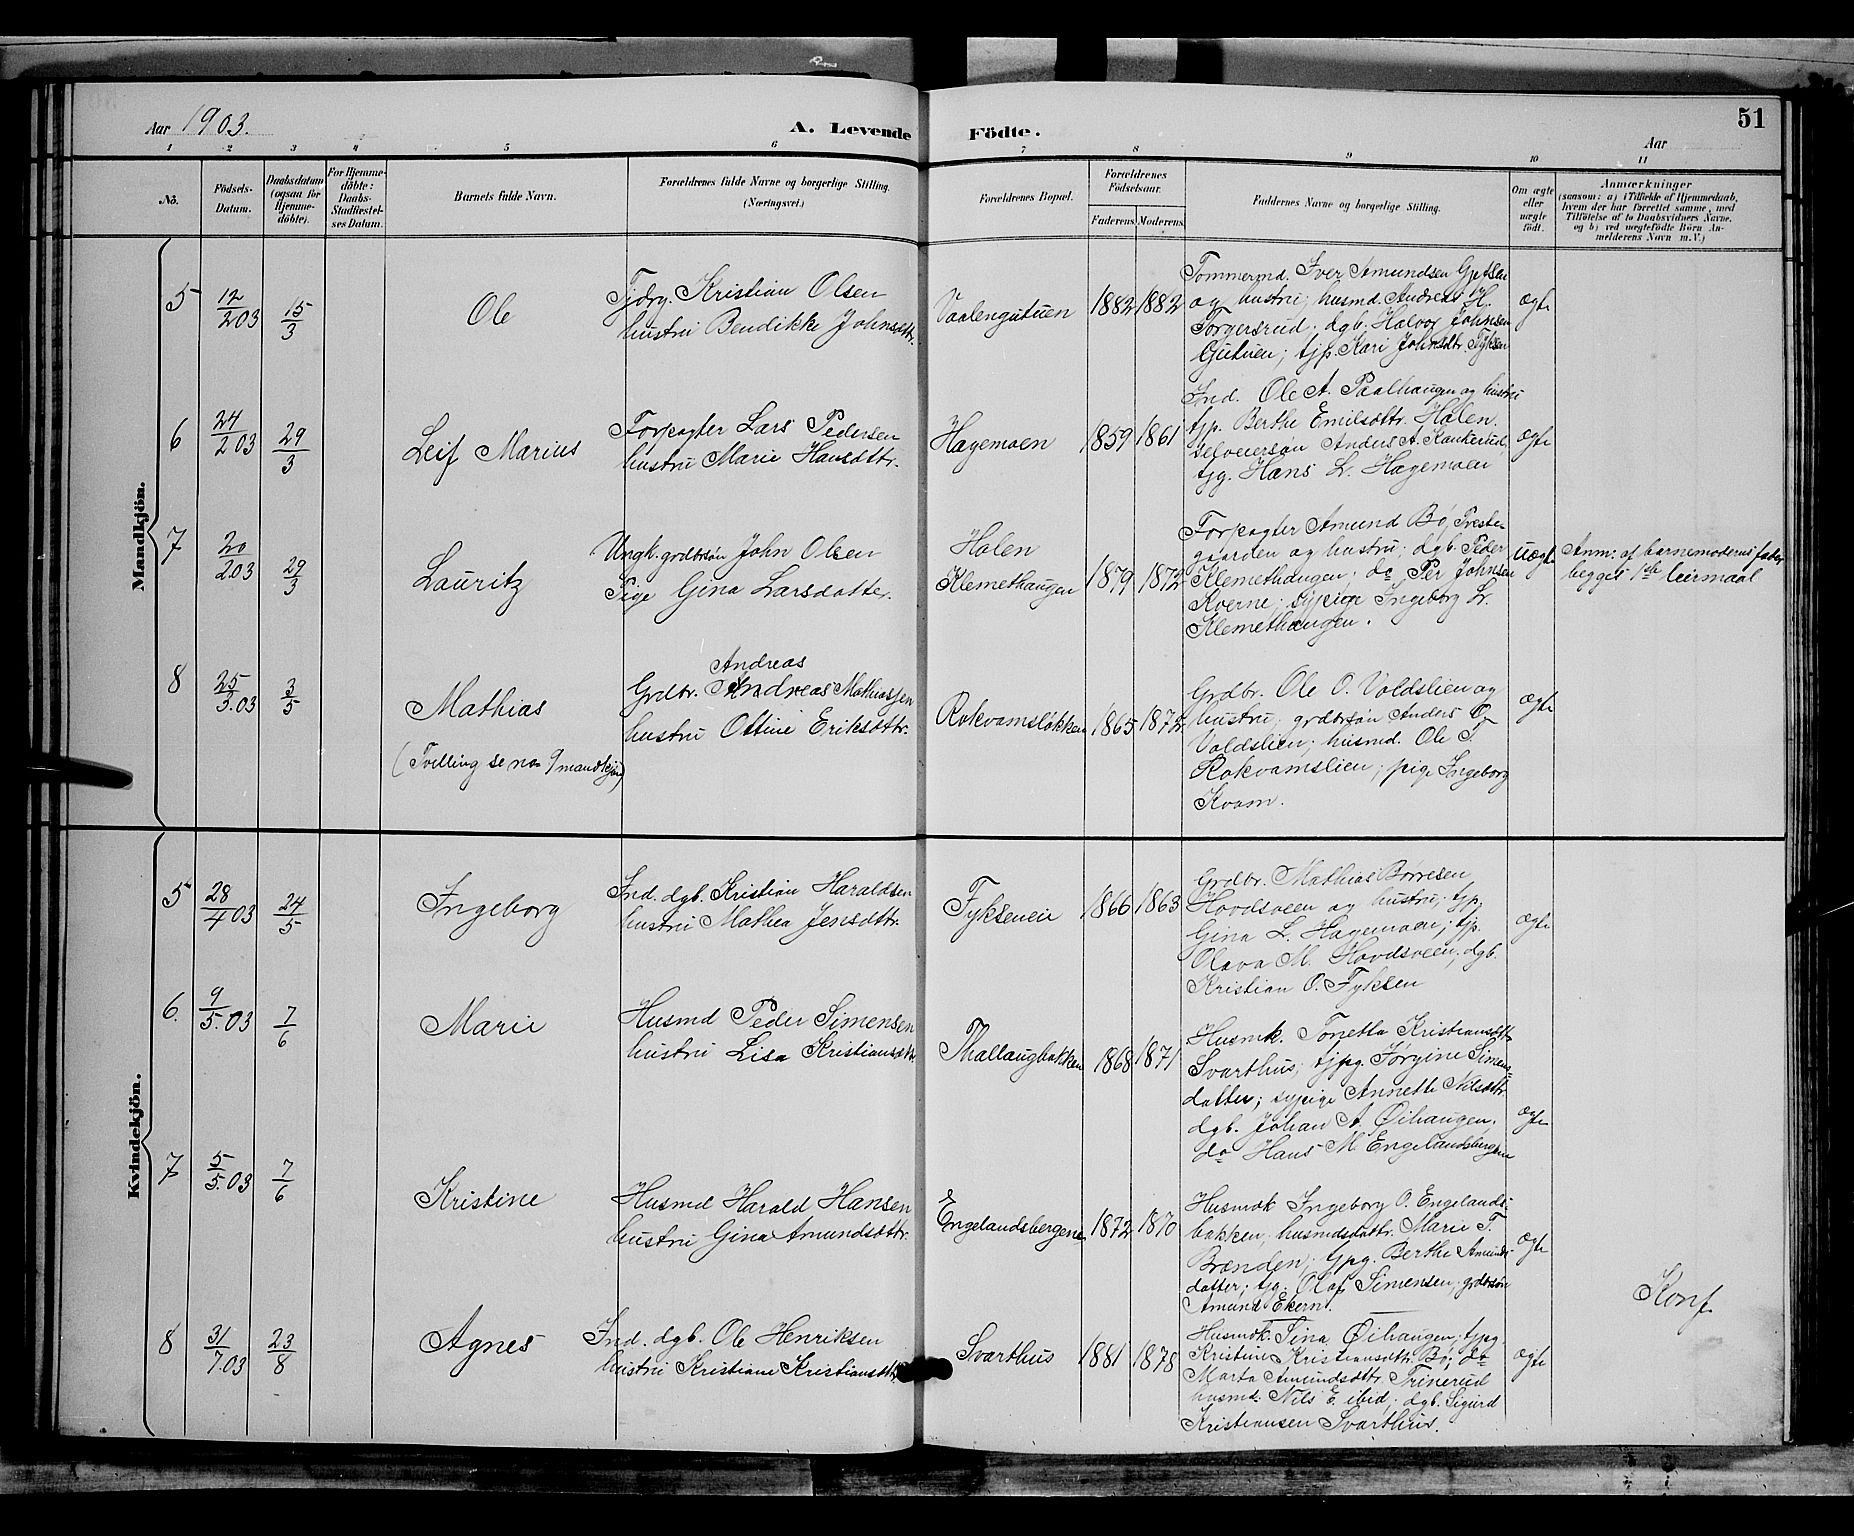 51
Aar 1903.
A. Levende Födte.
Aar
1 2 3 4 5 6 7 8 9 10 11
No.
Födsels-
Datum.
Daabsdatum
(ogsaa for
Hjemme-
döbte).
For Hjemme-
döbte:
Daabs-
Stadfæstel-
ses Datum.
Barnets fulde Navn.
Forældrenes fulde Navne og borgerlige Stilling.
(Næringsvei.)
Forældrenes Bopæl.
Forældrenes
Födselsaar.
Faderens.
Moderens.
Faddernes Navne og borgerlige Stilling.
Om ægte
eller
uægte
födt.
Anmærkninger
(saasom: a) i Tilfælde af Hjemmedaab,
hvem der har forrettet samme, med
Tilföielse af to Daabsvidners Navne,
og b) ved uægtefödte Börn An-
melderens Navn m. V.)
Mandkjön.
5
12/2 03
15/3
Ole
Tjdrg. Kristian Olsen
hustru Bendikke Johnsdttr.
Vaalengutuen
1882
1882
Tømmermd. Iver Amundsen
og hustru; husmd. Andreas H.
Torgersrud; dgb. Halvor Johnsen
Gutuen; tjp. Kari Johnsdtr. Fyksen
ægte
6
24/2 03
29/3
Leif Marius
Forpagter Lars Pedersen
hustru Marie Hansdttr.
Hagemoen
1859
1861
Ind. Ole A. Paalhaugen og hustru
tjp. Berthe Emilsdttr. Holen.
selveiersøn Anders A. Kankerud,
tjg. Hans L. Hagemoen
ægte
7
20/2 03
29/3
Lauritz
Ungk. grdbrsøn John Olsen
Pige Gina Larsdatter.
Holen
Klemethaugen
1879
1872
Forpagter Amund Bø, Preste-
gaarden og hustru; dgb. Peder
Klemethaugen; do Per Johnsen
Kverne; sypige Ingeborg L.
Klemethaugen.
uægte
Anm: af barnemoderens fader
begges 1ste leiermaal
8
25/3.03
3/5
Mathias
(Tvilling se no 9 mandkjøn)
Andreas
Grdbr. Andreas Mathiassen
hustru Ottine Eriksdttr.
Rokvamsløkken
1865
1872
Grdbr. Ole O. Voldslien og
hustru; grdbrsøn Anders O.
Voldslien; husmd. Ole T.
Rokvamslien; pige Ingeborg
Kvam.
ægte
Kvindekjön.
5
28/4 03
24/5
Ingeborg
Ind. dgb. Kristian Haraldsen
hustru Mathea Jensdttr.
Fykseneie
1866
1863
Grdbr. Mathias Børresen
Hovdsveen og hustru; tjp.
Gina L. Hagemoen; tjp.
Olava M. Hovdsveen; dgb.
Kristian O. Fyksen
ægte
6.
9/5.03
7/6
Marie
Husmd Peder Simensen
hustru Lisa Kristiansdttr.
Thallaugbakken
1868
1871
Husmk. Tonetta Kristiansdttr
Svarthus; tjpg. Jørgine Simens-
datter; sypige Annette Nilsdttr.
dgb. Johan A. Øihaugen,
do Hans M. Engelandsbergene
ægte
7
5/5.03
7/6
Kristine
Husmd Harald Hansen
hustru Gina Amundsdttr.
Engelandsbergene
1872
1870
Husmdk Ingeborg O. Engelands-
bakken; husmdsdattr. Marie T.
Brænden; tjpg. Berthe Amunds-
datter; tjg. Olaf Simensen; grdbrsøn
Amund Ekern.
ægte
8
31/7.03
23/8
Agnes
Ind. dgb. Ole Henriksen
hustru Kristiane Kristiansdttr.
Svarthus
1881
1878
Husmdk. Tina Øihaugen; tjpg.
Kristine Kristiansdttr. Bø; do
Marta Amundsdttr. Trinerud
husmd. Nils E. ibid; dgb. Sigurd
Kristiansen Svarthus.
ægte
Konf.